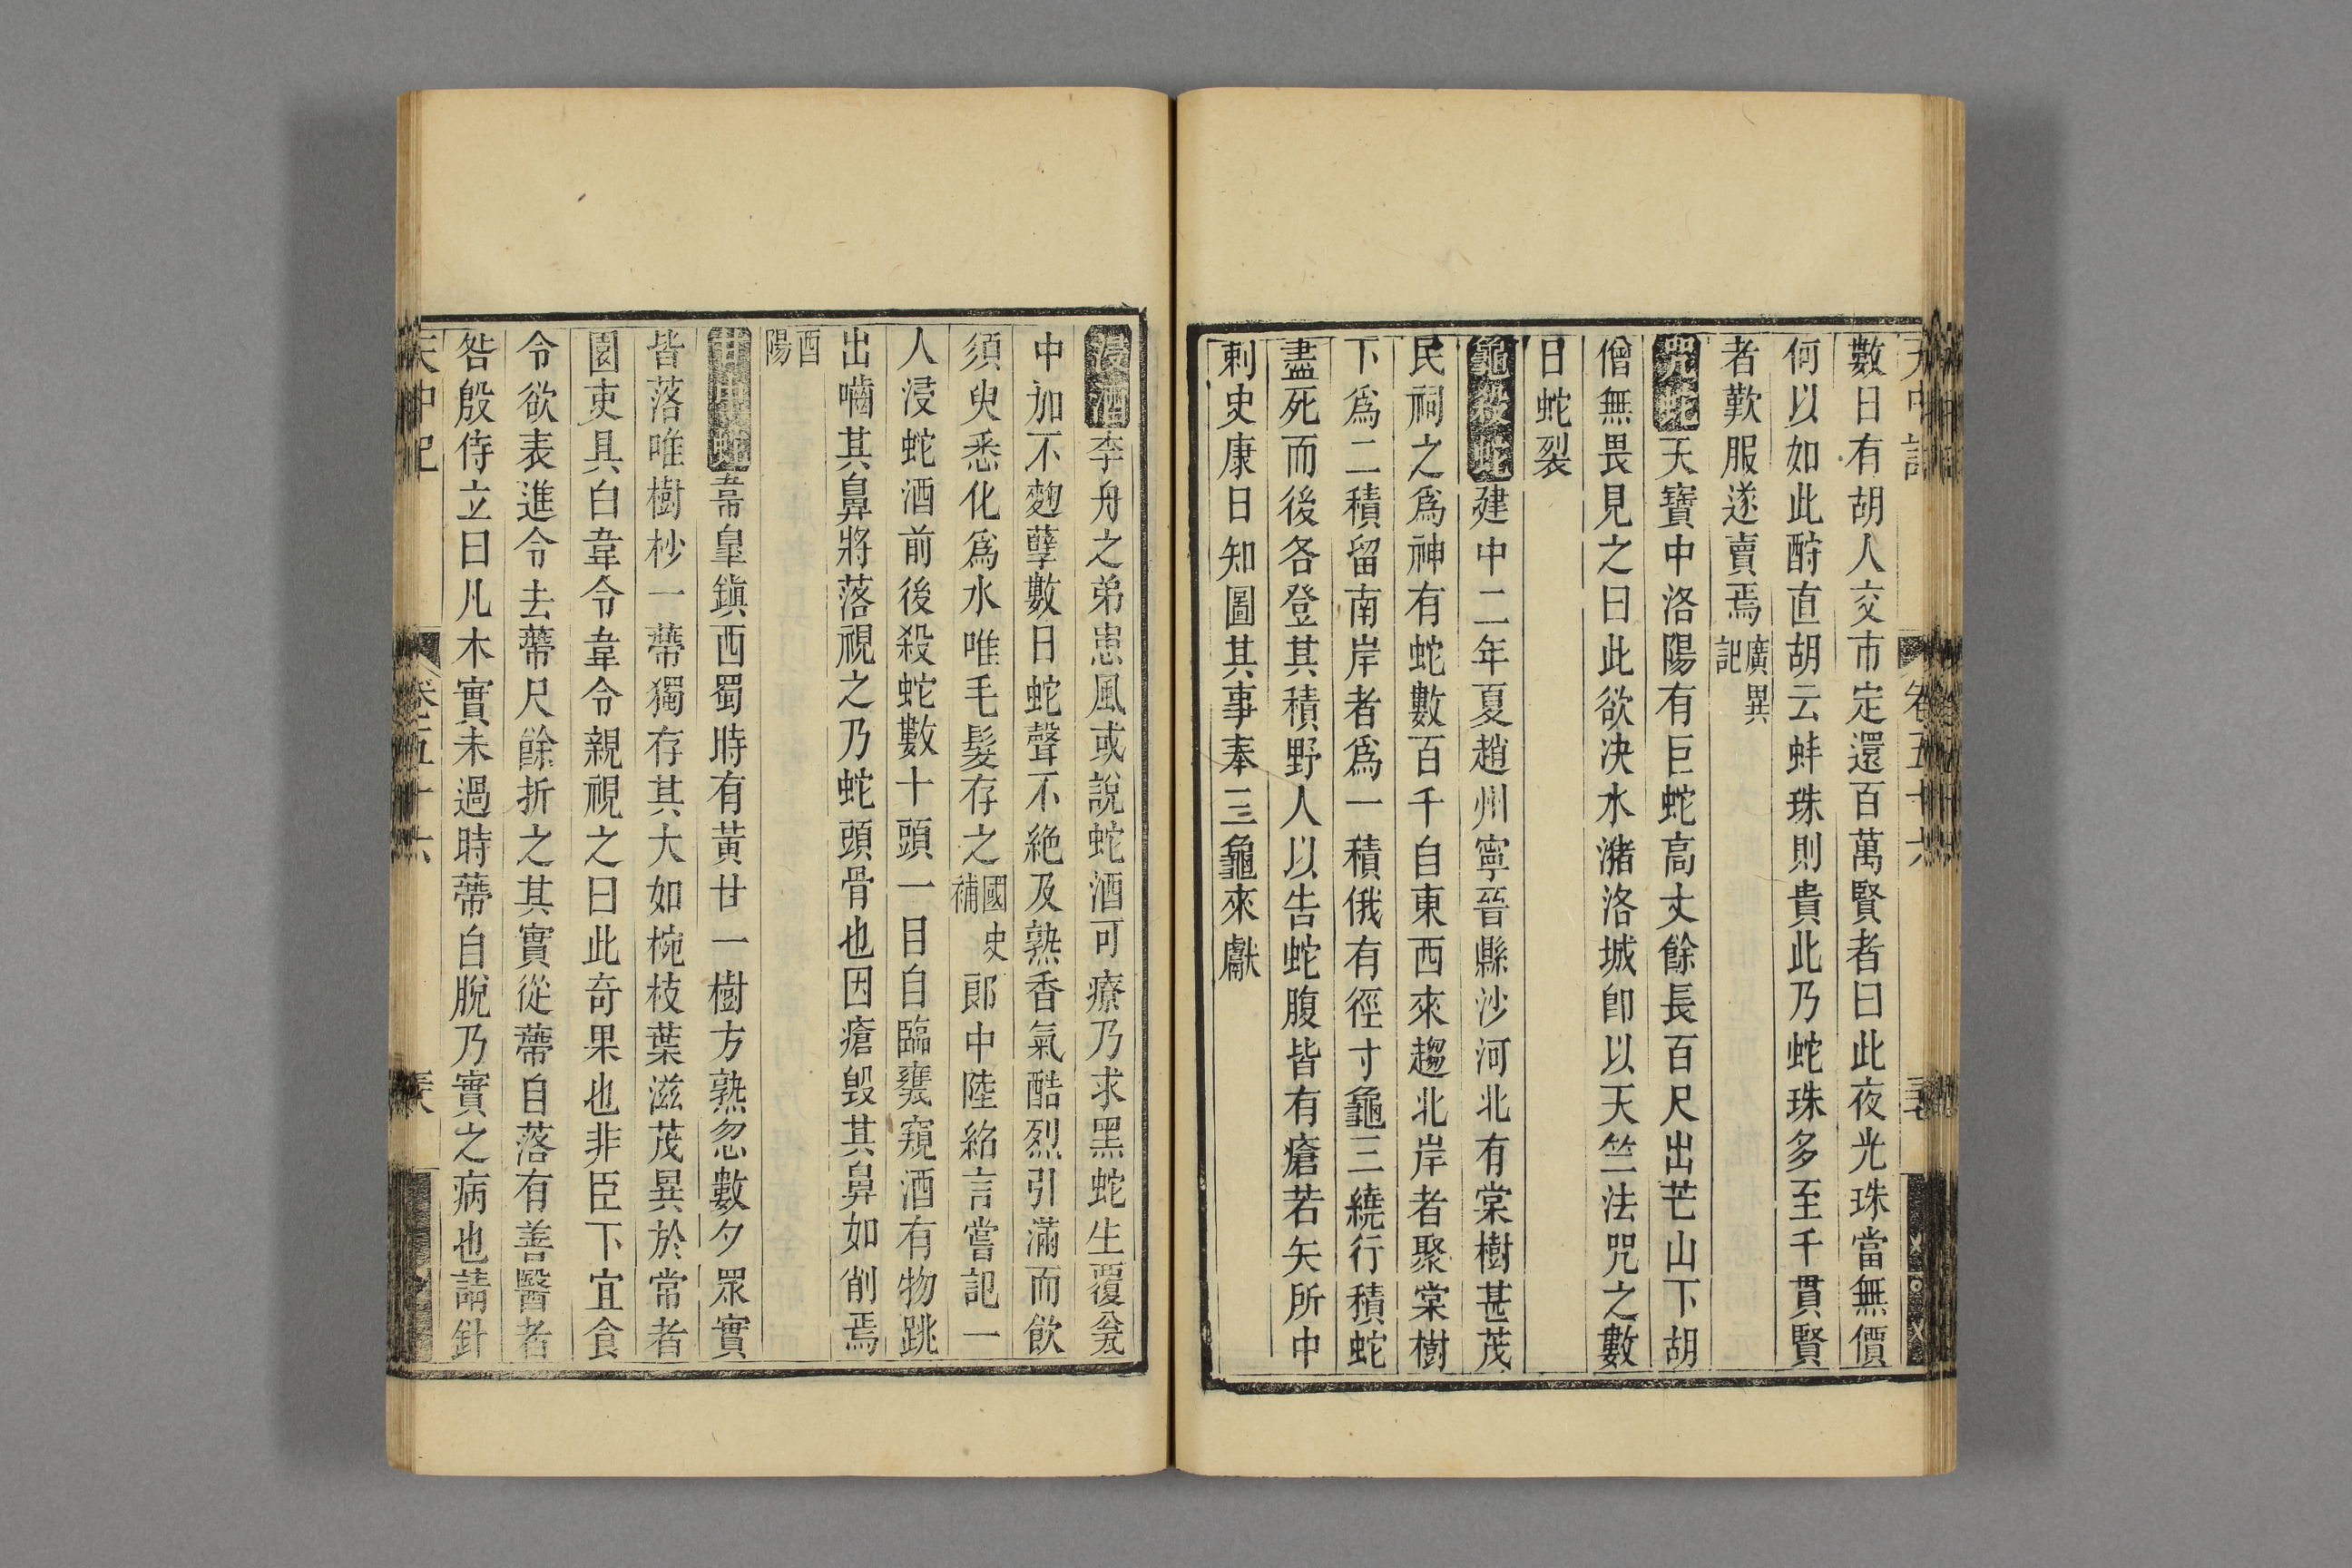 數日有胡人交市定還百萬賢者曰此夜光珠當無價
何以如此酧直胡云蚌珠則貴此乃蛇珠多至千貫賢
者歎服遂賣焉廣異記
咒蛇天寶中洛陽有巨蛇高丈餘長百尺出芒山下胡
僧無畏見之曰此欲决水瀦洛城卽以天竺法咒之數
日蛇裂
龜殺蛇建中二年夏趙州寧晉縣沙河北有棠樹甚茂
民祠之爲神有蛇數百千自東西來趨北岸者聚棠樹
下爲二積留南岸者爲一積俄有徑寸龜三繞行積蛇
盡死而後各登其積野人以告蛇腹皆有瘡若矢所中
刺史康日知圖其事奉三龜來獻
浸酒李舟之弟患風或說蛇酒可療乃求黑蛇生覆瓮
中加不麴孽數日蛇聲不絶及熟香氣酷烈引滿而飲
須臾悉化爲水唯毛髮存之國史補郎中陸紹言嘗記一
人浸蛇酒前後殺蛇數十頭一日自臨甕窺酒有物跳
出嚙其鼻將落視之乃蛇頭骨也因瘡毀其鼻如削焉
酉陽
韋皐鎭西蜀時有黃甘一樹方熟忽數夕眾實
皆落唯樹杪一蔕獨存其大如椀枝葉滋茂異於常者
園吏具白韋令韋令親視之曰此奇果也非臣下宜食
令欲表進令去蔕尺餘折之其實從蔕自落有善醫者
昝殷侍立曰凡木實未過時蔕自脫乃實之病也請針